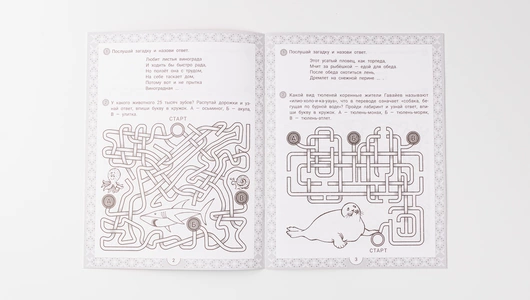 Послушай загадку и назови ответ.
Любит листья винограда
И ходить бы быстро рада,
Но ползёт она с трудом,
На себе таскает дом.
Потому вот и не прытка
Виноградная ...
У какого животного 25 тысяч зубов? Распутай дорожки и уз-
най ответ, впиши букву в кружок. А – осьминог, Б – акула,
В – улитка.
СТАРТ
А
Б
2
Послушай загадку и назови ответ.
Этот усатый пловец, как торпеда,
Мчит за рыбёшкой – едой для обеда.
После обеда охотиться лень,
Дремлет на снежной перине ...
Какой вид тюленей коренные жители Гавайев называют
«илио-холо-и-ка-уауа», что в переводе означает «собака, бе-
гущая по бурной воде»? Пройди лабиринт и узнай ответ, впи-
ши букву в кружок. А – тюлень-монах, Б – тюлень-моряк,
В – тюлень-атлант.
А
Б
В
СТАРТ
3